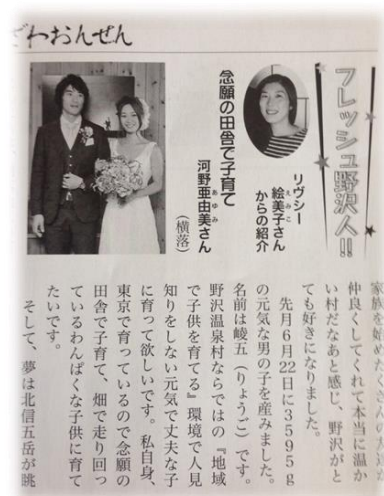 ざわおんせん
フレッシュ野沢人!!
リヴシー
絵美子さん
えみこ
からの紹介
念願の田舎で子育て
河野亜由美さん
あゆみ
(横落)
仲良くしてくれて本当に温か
い村だなあと感じ、野沢がと
ても好きになりました。
先月6月22日に3595g
の元気な男の子を産みました。
名前は崚五(りょうご)です。
野沢温泉村ならではの『地域
で子供を育てる』環境で人見
知りをしない元気で丈夫な子
に育って欲しいです。私自身、
東京で育っているので念願の
田舎で子育て、畑で走り回っ
ているわんぱくな子供に育て
たいです。
そして、夢は北信五岳が眺